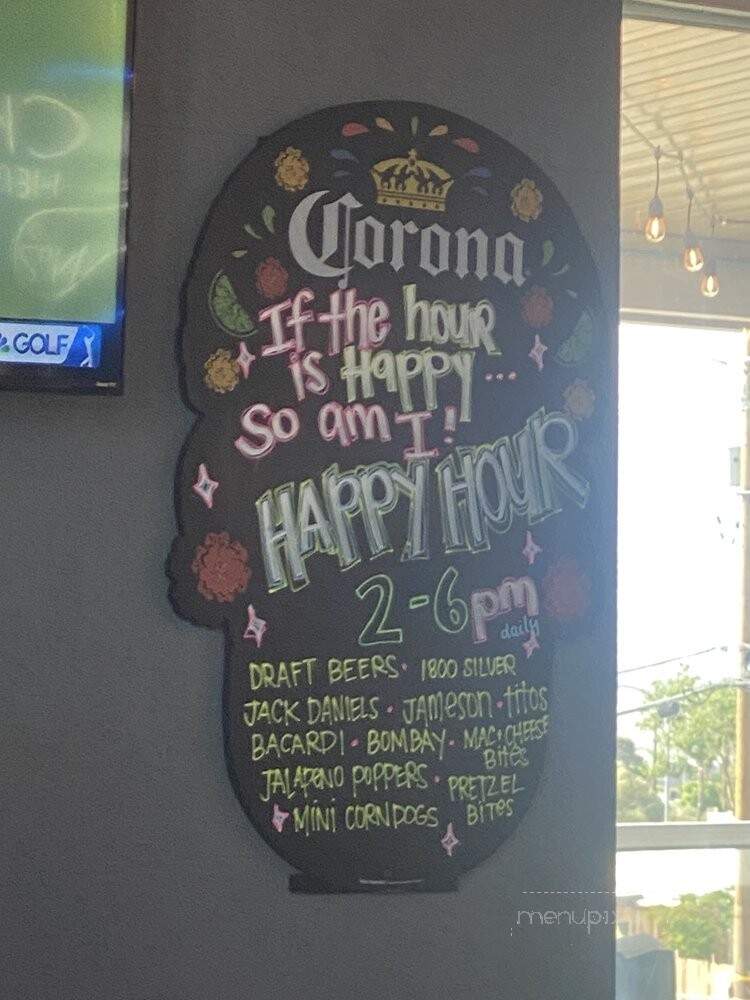 GOLF
Corona
If the hour
is Happy...
So am I!
HAPPY HOUR
2-6pm
daily
DRAFT BEERS • 1800 SILVER
JACK DANIELS • JAMESON • titos
BACARDI • BOMBAY • MAC+CHEESE
Bites
JALAPENO POPPERS • PRETZEL
BITES
MINI CORNDOGS
menupix